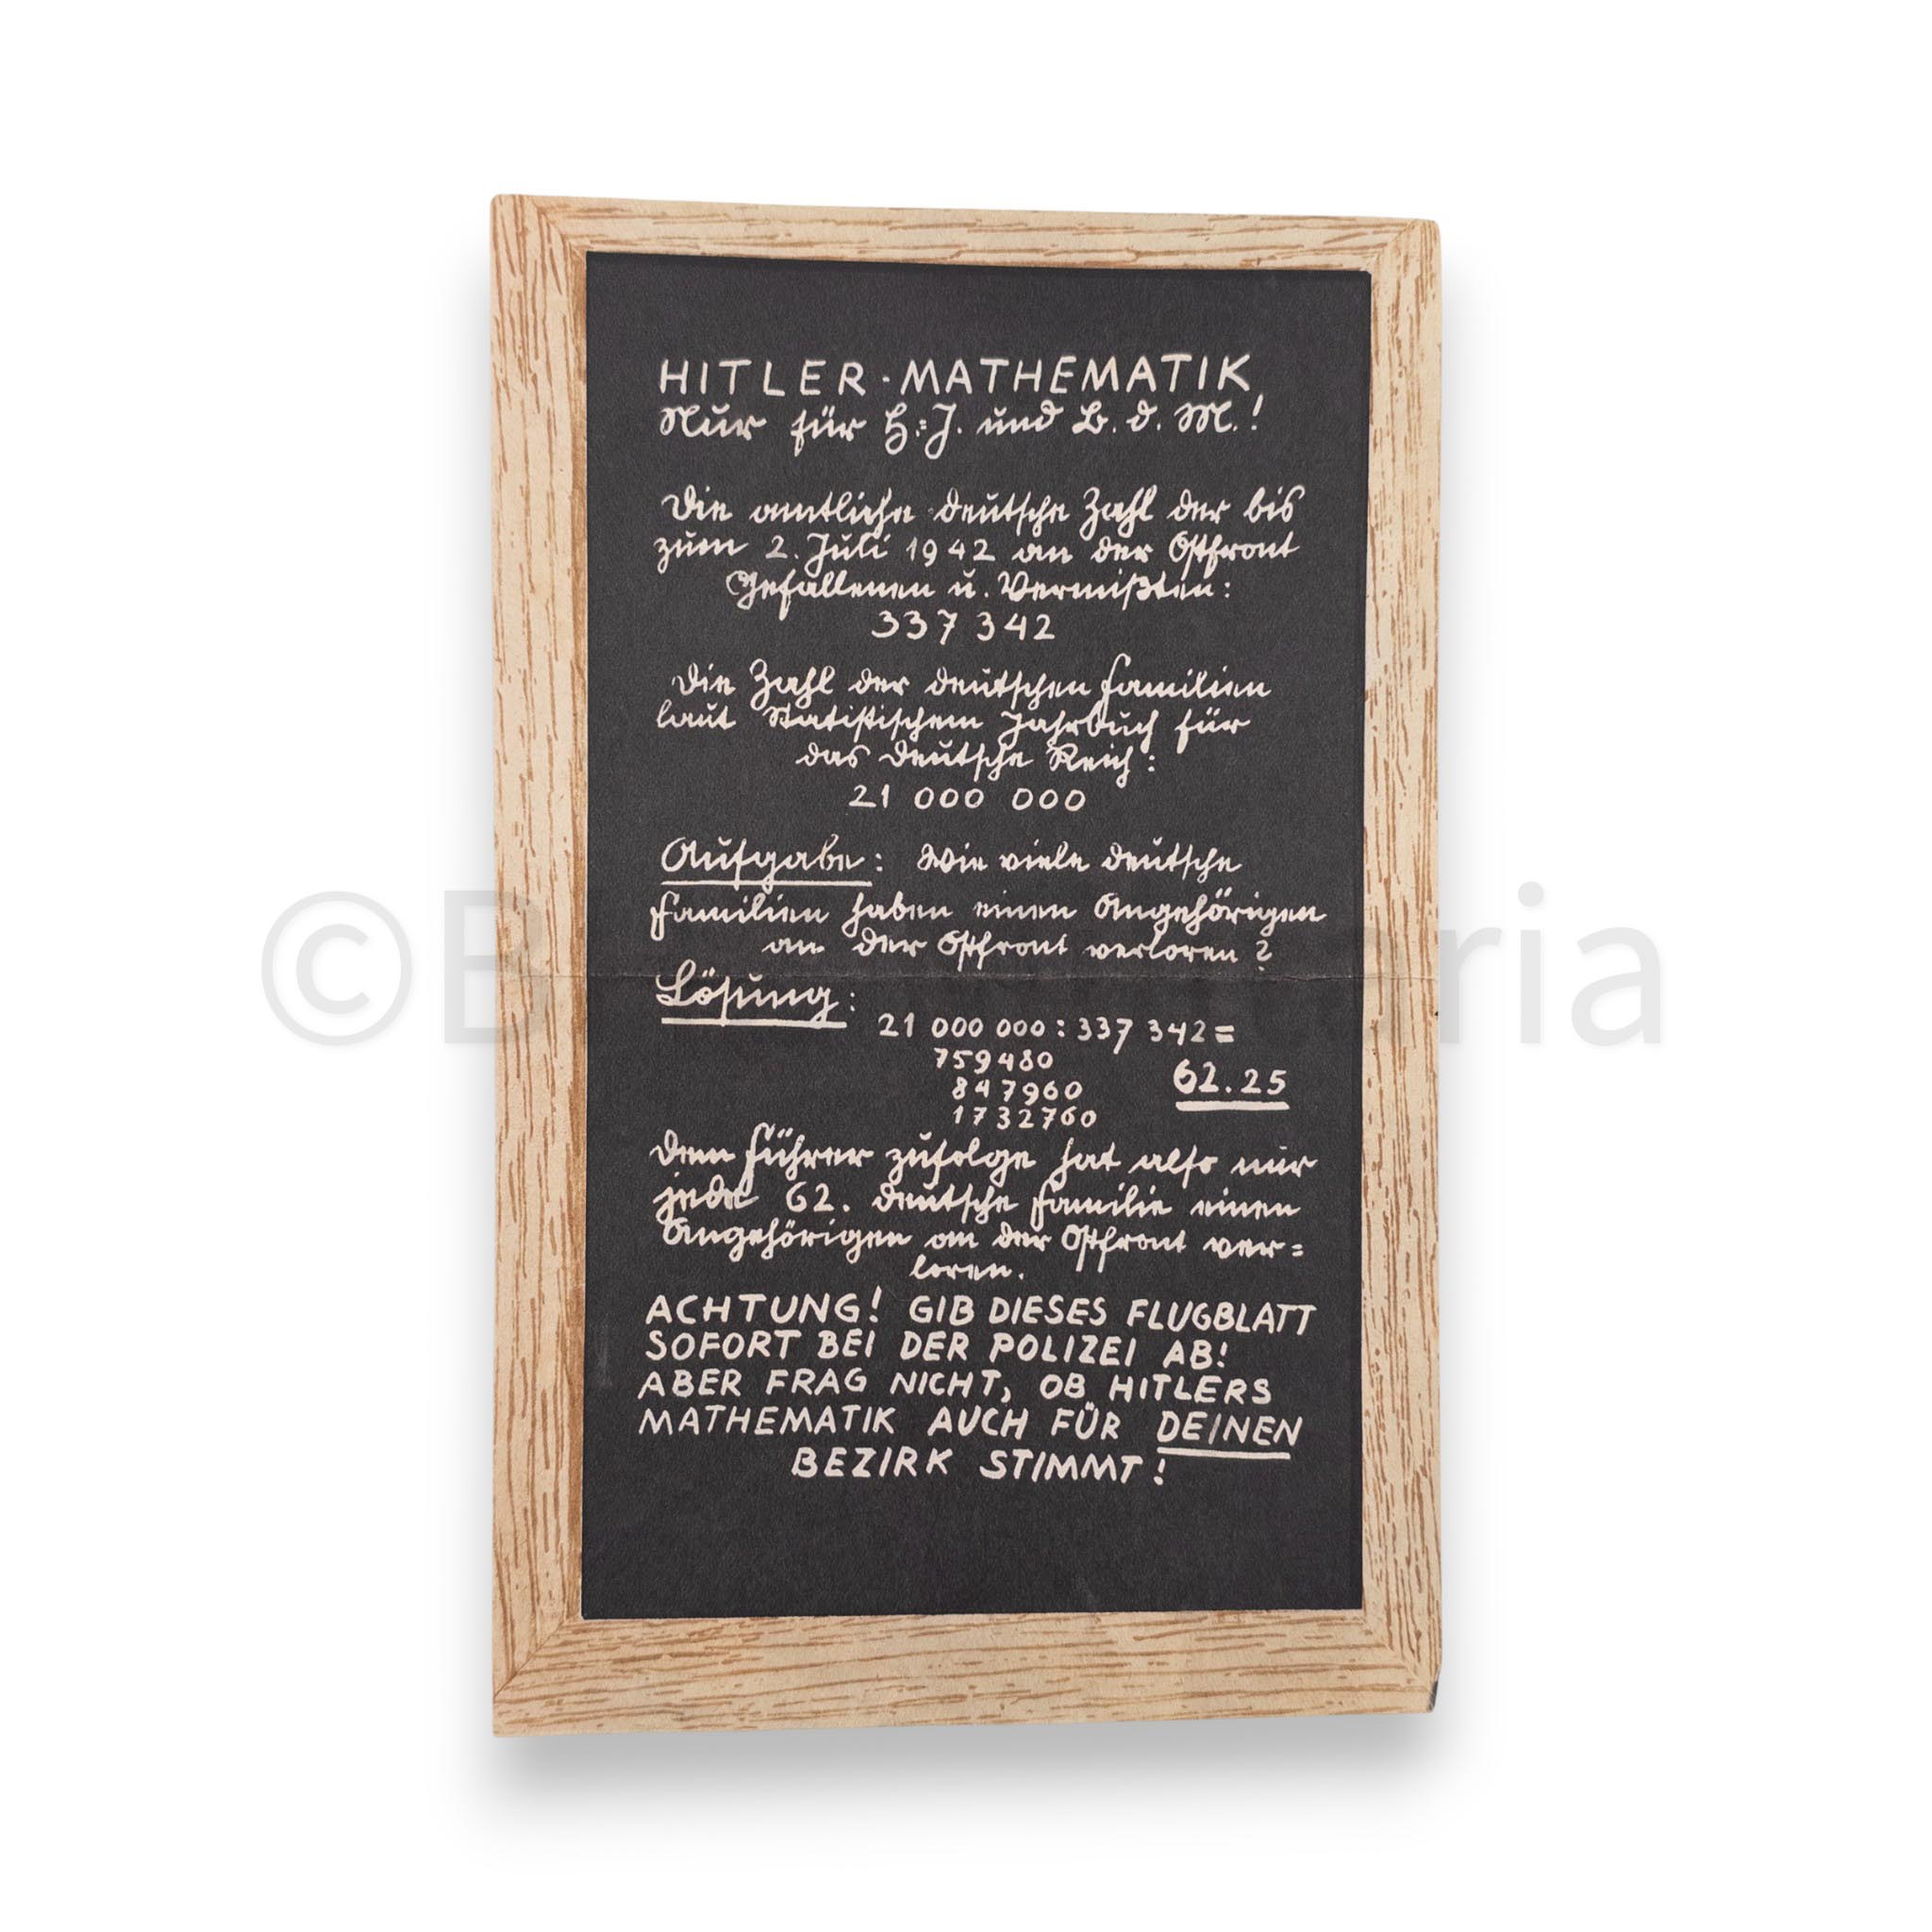 HITLER-MATHEMATIK
Nur für H.=J. und B.d.M.!
Die amtliche deutsche Zahl der bis
zum 2. Juli 1942 an der Ostfront
Gefallenen u. Vermißten:
337 342
Die Zahl der deutschen Familien
laut Statistischem Jahrbuch für
das Deutsche Reich:
21 000 000
Aufgabe: Wie viele deutsche
Familien haben einen Angehörigen
an der Ostfront verloren?
Lösung:
21 000 000 : 337 342 =
759480
847960
62.25
1732760
Dem Führer zufolge hat also nur
jede 62. deutsche Familie einen
Angehörigen an der Ostfront ver=
loren.
ACHTUNG! GIB DIESES FLUGBLATT
SOFORT BEI DER POLIZEI AB!
ABER FRAG NICHT, OB HITLERS
MATHEMATIK AUCH FÜR DEINEN
BEZIRK STIMMT!